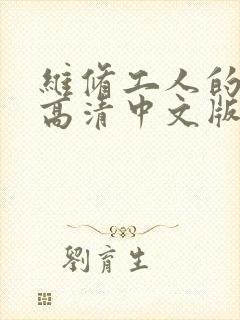 維脩工人的
高清中文版
劉育生